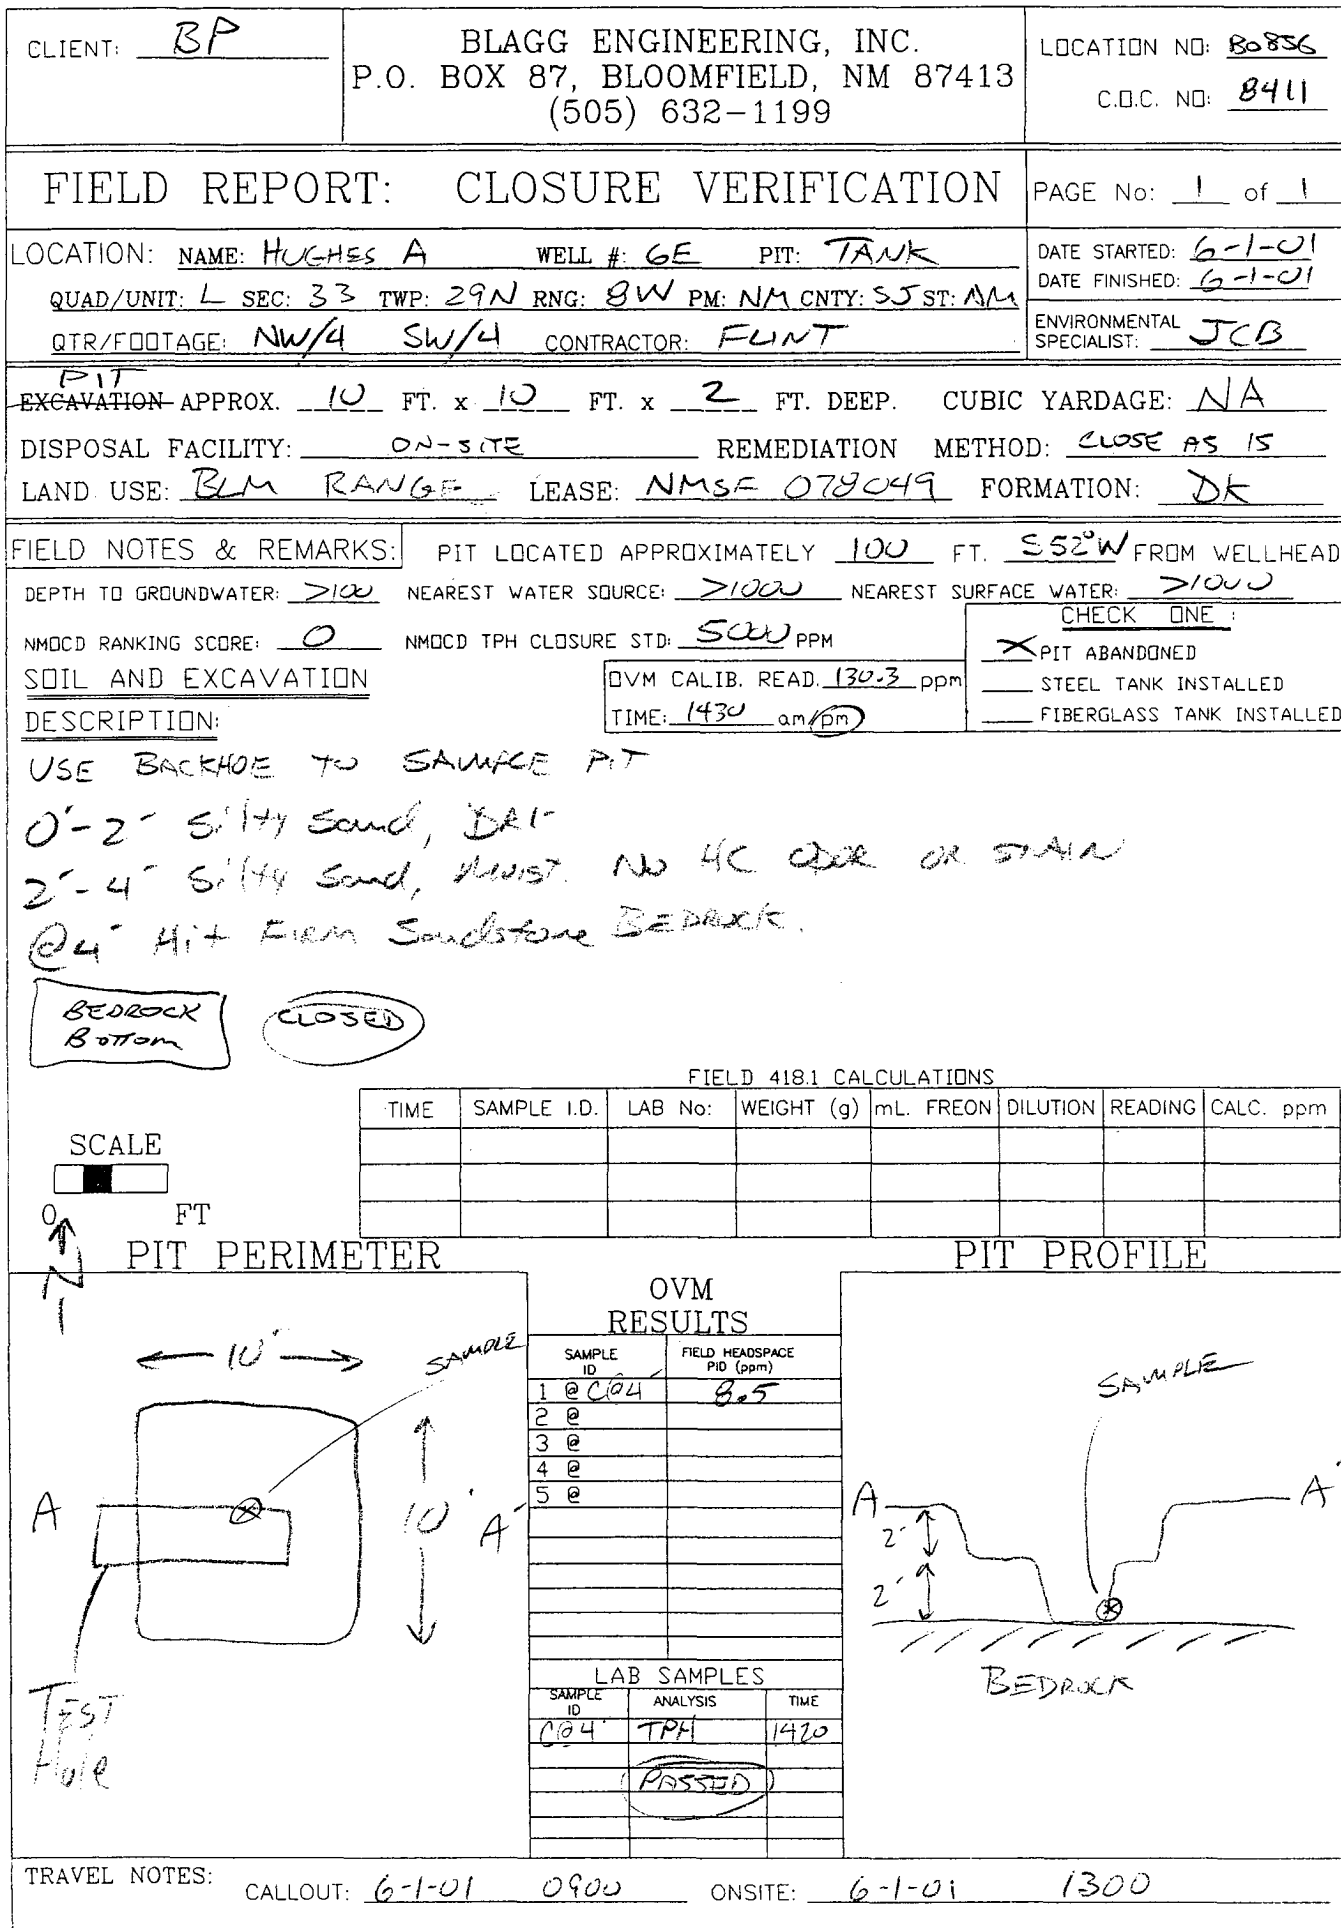 CLIENT: BP
BLAGG ENGINEERING, INC.
P.O. BOX 87, BLOOMFIELD, NM 87413
(505) 632-1199
LOCATION NO: B0856
C.O.C. NO: 8411
FIELD REPORT: CLOSURE VERIFICATION
PAGE No: 1 of 1
LOCATION: NAME: HUGHES A WELL #: 6E PIT: TANK
QUAD/UNIT: L SEC: 33 TWP: 29N RNG: 8W PM: NM CNTY: SJ ST: NM
QTR/FOOTAGE: NW/4 SW/4 CONTRACTOR: FLINT
DATE STARTED: 6-1-01
DATE FINISHED: 6-1-01
ENVIRONMENTAL
SPECIALIST: JCB
PIT
EXCAVATION APPROX. 10 FT. x 10 FT. x 2 FT. DEEP. CUBIC YARDAGE: NA
DISPOSAL FACILITY: ON-SITE REMEDIATION METHOD: CLOSE AS IS
LAND USE: BLM RANGE LEASE: NMSF 078049 FORMATION: DK
FIELD NOTES & REMARKS: PIT LOCATED APPROXIMATELY 100 FT. S52°W FROM WELLHEAD
DEPTH TO GROUNDWATER: >100 NEAREST WATER SOURCE: >1000 NEAREST SURFACE WATER: >1000
NMOCD RANKING SCORE: 0 NMOCD TPH CLOSURE STD: 5000 PPM
CHECK ONE :
X PIT ABANDONED
STEEL TANK INSTALLED
FIBERGLASS TANK INSTALLED
SOIL AND EXCAVATION
DESCRIPTION:
OVM CALIB. READ. 130.3 ppm
TIME: 1430 am/pm
USE BACKHOE TO SAMPLE PIT
0'-2' Silty Sand, DRY
2'-4' Silty Sand, MOIST. No HC ODOR OR STAIN
@4' Hit FIRM Sandstone BEDROCK.
BEDROCK
Bottom
CLOSED
FIELD 418.1 CALCULATIONS
TIME SAMPLE I.D. LAB No: WEIGHT (g) mL. FREON DILUTION READING CALC. ppm
SCALE
0 FT
N
PIT PERIMETER
PIT PROFILE
10'
SAMPLE
A
10'
A'
TEST
Hole
OVM
RESULTS
SAMPLE ID FIELD HEADSPACE PID (ppm)
1 @ C@4' 8.5
2 @
3 @
4 @
5 @
LAB SAMPLES
SAMPLE ID ANALYSIS TIME
C@4' TPH 1420
PASSED
SAMPLE
A
A'
2'
2'
BEDROCK
TRAVEL NOTES: CALLOUT: 6-1-01 0900 ONSITE: 6-1-01 1300